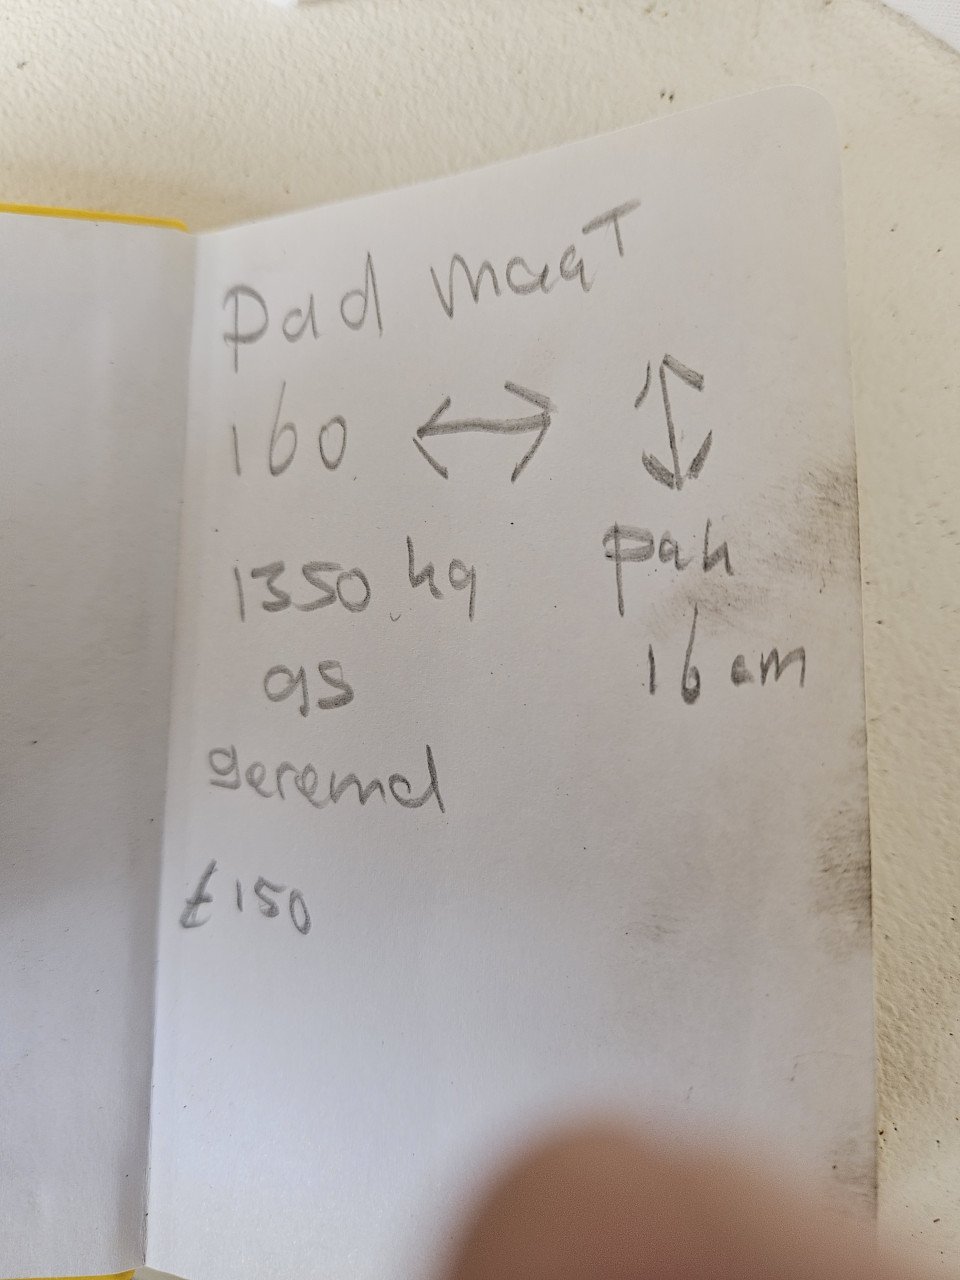 Pad maat
160 ↔ ↕
1350 kg pak
as 16 cm
geremd
£150